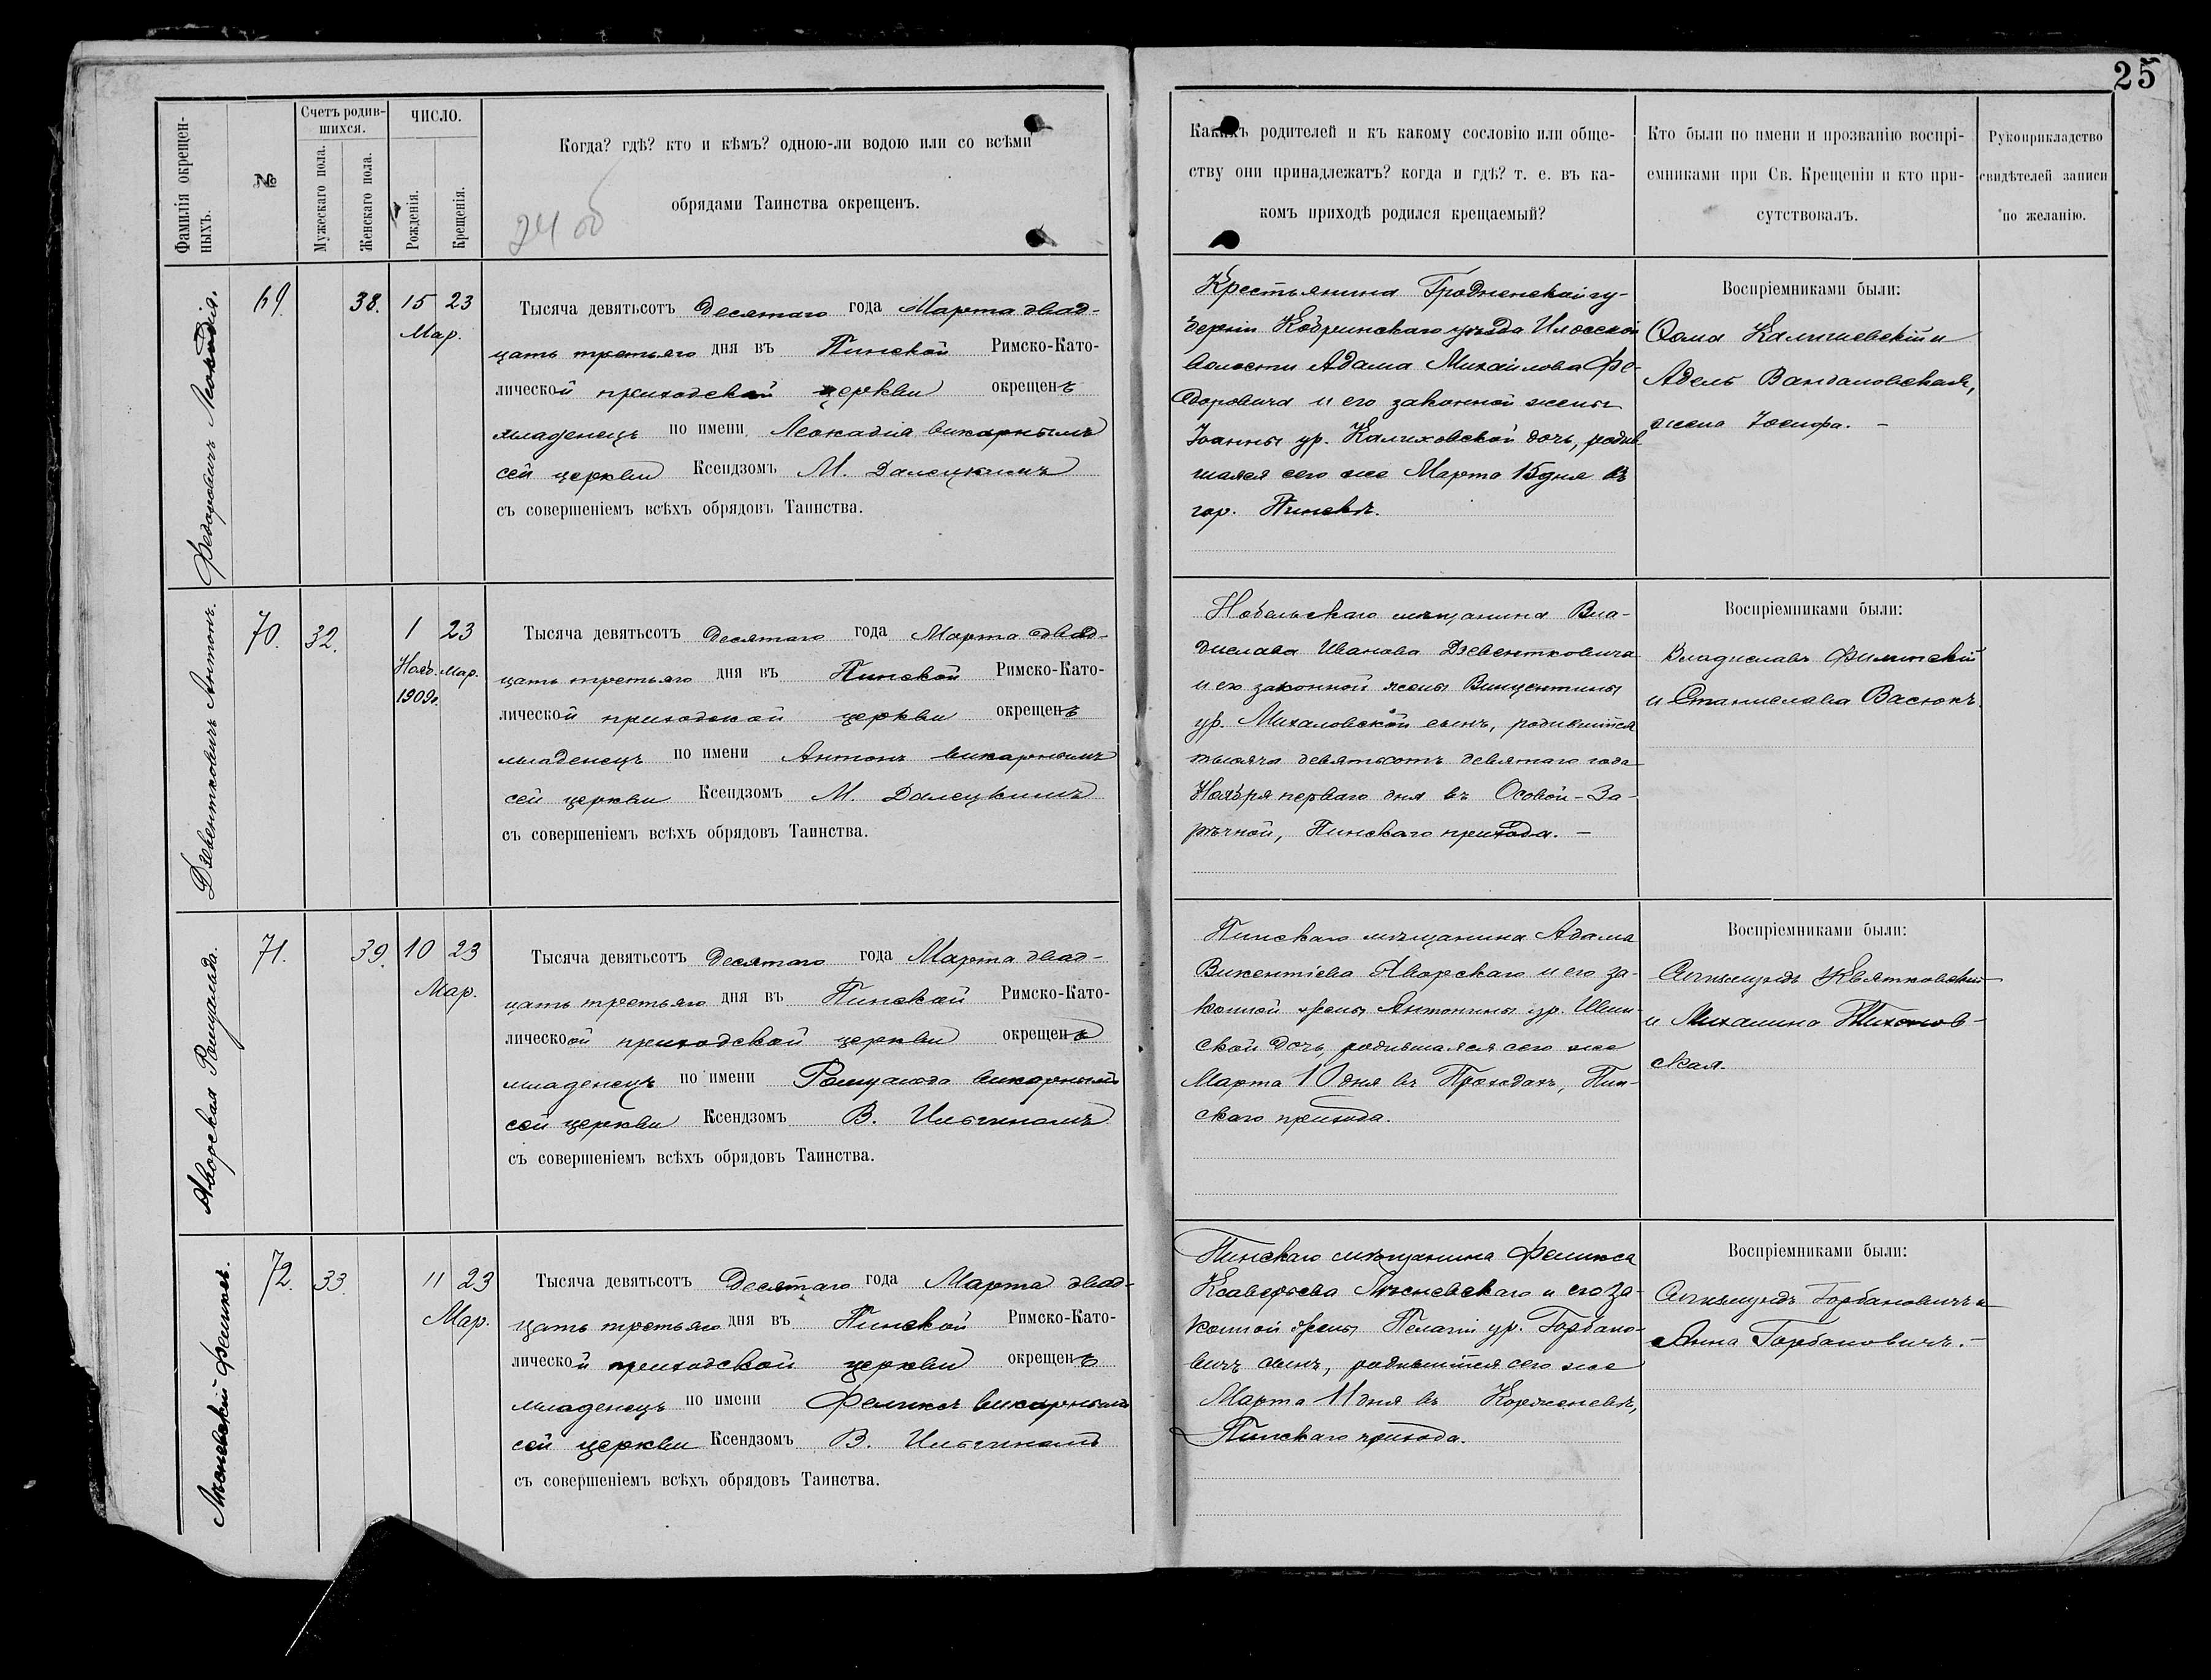 25
Фамилія окрещен-
ныхъ.
№
Счетъ родив-
шихся.
Мужескаго пола.
Женскаго пола.
ЧИСЛО.
Рожденія.
Крещенія.
Когда? гдѣ? кто и кѣмъ? одною-ли водою или со всѣми
обрядами Таинства окрещенъ.
24 об
Какихъ родителей и къ какому сословію или обще-
ству они принадлежатъ? когда и гдѣ? т. е. въ ка-
комъ приходѣ родился крещаемый?
Кто были по имени и прозванію воспрі-
емниками при Св. Крещеніи и кто при-
сутствовалъ.
Рукоприкладство
свидѣтелей записи
по желанію.
Федоровичъ Леокадія.
69.
38.
15 23
Мар.
Тысяча девятьсотъ десятаго года Марта двад-
цать третьяго дня въ Пинской Римско-Като-
лической приходской церкви окрещенъ
младенецъ по имени Леокадія викарнымъ
сей церкви Ксендзомъ М. Далецкимъ
съ совершеніемъ всѣхъ обрядовъ Таинства.
Крестьянина Гродненской гу-
берніи Кобринскаго уѣзда Илосской
волости Адама Михайлова Фе-
доровича и его законной жены
Іоанны ур. Калиховской дочь, родив-
шаяся сего же Марта 15 дня въ
гор. Пинскѣ.
Воспріемниками были:
Ѳома и
Адель Вандаловская,
жена Іосифа. -
Дзевентковичъ Антонъ.
70.
32.
1 23
Нояб. Мар.
1909г.
Тысяча девятьсотъ десятаго года Марта двад-
цать третьяго дня въ Пинской Римско-Като-
лической приходской церкви окрещенъ
младенецъ по имени Антонъ викарнымъ
сей церкви Ксендзомъ М. Далецкимъ
съ совершеніемъ всѣхъ обрядовъ Таинства.
Нобельскаго мѣщанина Вла-
дислава Иванова Дзевентковича
и его законной жены Винцентины
ур. Михаловской сынъ, родившійся
тысяча девятьсотъ девятаго года
Ноября перваго дня въ Особой-За-
рѣчной, Пинскаго прихода. -
Воспріемниками были:
Владиславъ Филипскій
и Станислава Васюкъ.
Яворская Ромуальда.
71.
39.
10 23
Мар.
Тысяча девятьсотъ десятаго года Марта двад-
цать третьяго дня въ Пинской Римско-Като-
лической приходской церкви окрещенъ
младенецъ по имени Ромуальда викарнымъ
сей церкви Ксендзомъ В. Ильгиномъ
съ совершеніемъ всѣхъ обрядовъ Таинства.
Пинскаго мѣщанина Адама
Викентіева Яворскаго и его за-
конной жены Антонины ур.
дочь, родившаяся сего же
Марта 10 дня въ Проходахъ, Пин-
скаго прихода.
Воспріемниками были:
Сигизмундъ Квятковскій
и Михалина Тихонов-
ская.
Лѣсневскій Феликсъ.
72.
33.
11 23
Мар.
Тысяча девятьсотъ десятаго года Марта двад-
цать третьяго дня въ Пинской Римско-Като-
лической приходской церкви окрещенъ
младенецъ по имени Феликсъ викарнымъ
сей церкви Ксендзомъ В. Ильгиномъ
съ совершеніемъ всѣхъ обрядовъ Таинства.
Пинскаго мѣщанина Феликса
Ксаверьева Лѣсневскаго и его за-
конной жены Пелагіи ур. Горбано-
вичъ сынъ, родившійся сего же
Марта 11 дня въ Корженевѣ,
Пинскаго прихода.
Воспріемниками были:
Сигизмундъ Горбановичъ и
Анна Горбановичъ. -